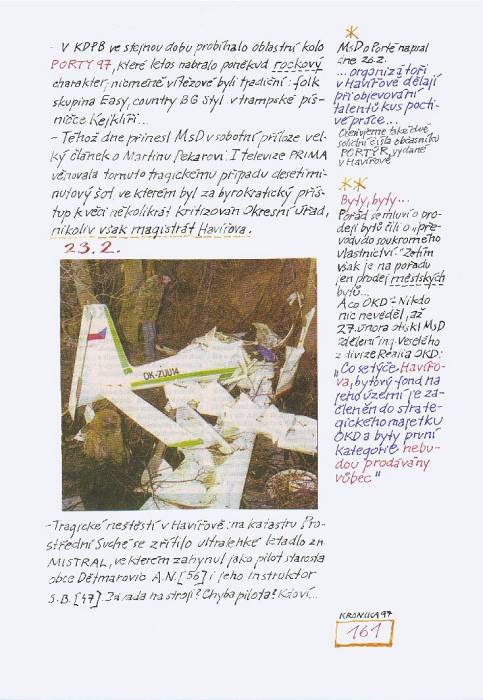 - V KDPB ve stejnou dobu probíhalo oblastní kolo
PORTY 97, které letos nabralo poněkud rockový
charakter, nicméně vítězové byli tradiční: folk
skupina Easy, country BG Styl v trampské pís-
ničce Kejklíři...
- Téhož dne přinesl MsD v sobotní příloze vel-
ký článek o Martinu Pekarovi. I televize PRIMA
věnovala tomuto tragickému případu desetimi-
nutový šot, ve kterém byl za byrokratický přís-
tup k věci několikrát kritizován Okresní úřad,
nikoliv však magistrát Havířova.
23.2.
OK-ZUU14
- Tragické neštěstí v Havířově: na katastru Pro-
střední Suché se zřítilo ultralehké letadlo zn.
MISTRAL, ve kterém zahynul jako pilot starosta
obce Dětmarovic A.N. [56] i jeho instruktor
S.B. [47]. Závada na stroji? Chyba pilota? Kdoví...
*
MsD o Portě napsal
dne 26.2.
...organizátoři
v Havířově dělají
při objevování
talentů kus pocti-
vé práce...
Oceňujeme také dvě
solidní čísla občasníku
PORTÝR, vydané
v Havířově
**
Byty, byty...
Pořád se mluví o pro-
deji bytů čili o „pře-
vodu do soukromého
vlastnictví." Zatím
však je na pořadu
jen prodej městských
bytů...
A co OKD? - Nikdo
nic nevěděl, až
27. února otiskl MsD
sdělení ing. Veselého
z divize Reália OKD:
„Co se týče Havířo-
va, bytový fond na
jeho území je za-
členěn do strate-
gického majetku
OKD a byty první
kategorie nebu-
dou prodávány
vůbec"
KRONIKA 97
161